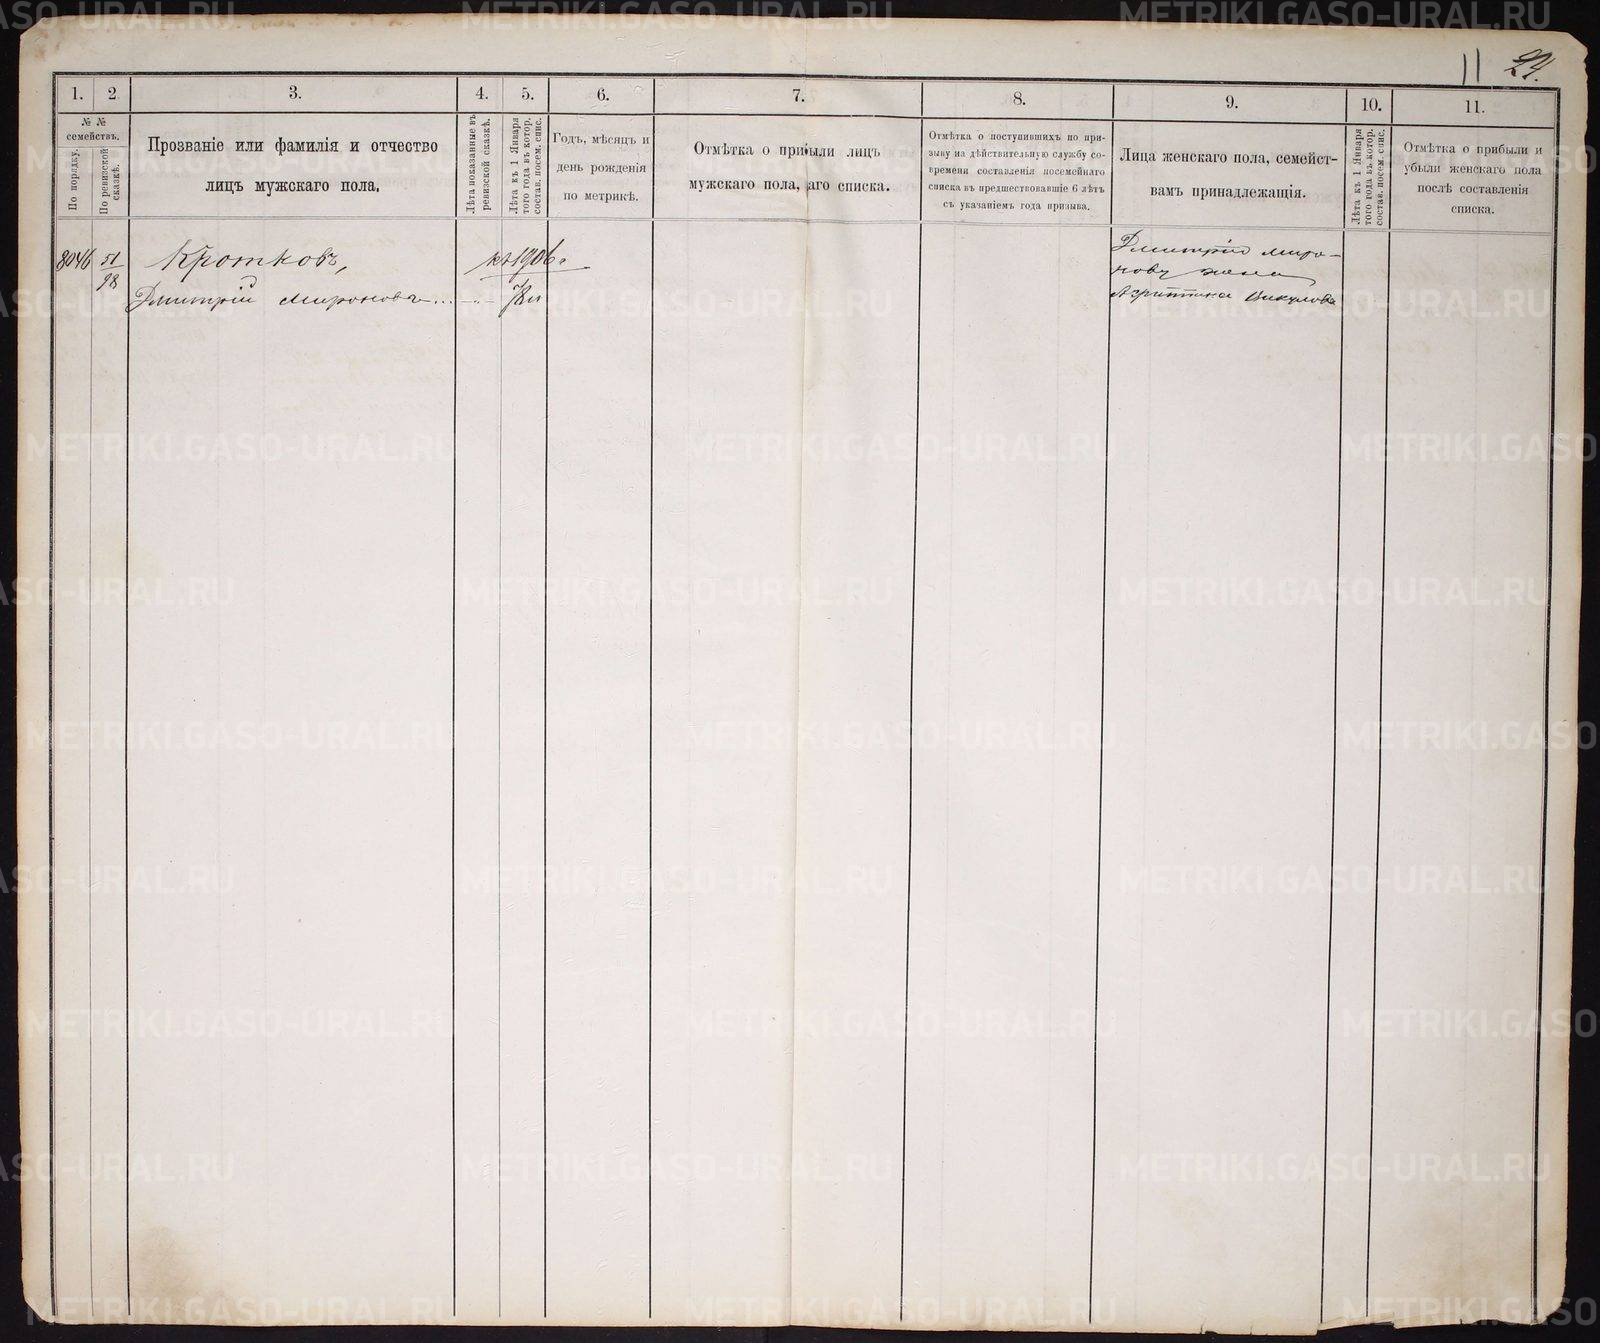 11 24.
1. 2 3. 4. 5. 6. 7. 8. 9. 10. 11.
№ №
семействъ.
По порядку.
По ревизской
сказкѣ.
Прозваніе или фамилія и отчество
лицъ мужскаго пола,
Лѣта показанные въ
ревизской сказкѣ.
Лѣта къ 1 Января
того года въ котор.
состав. посем. спис.
Годъ, мѣсяцъ и
день рожденія
по метрикѣ.
Отмѣтка о прибыли лицъ
мужскаго пола, аго списка.
Отмѣтка о поступившихъ по при-
зыву на дѣйствительную службу со-
времени составленія посемейнаго
списка въ предшествовавшіе 6 лѣтъ
съ указаніемъ года призыва.
Лица женскаго пола, семейст-
вамъ принадлежащія.
Лѣта къ 1 Января
того года въ котор.
состав. посем. спис.
Отмѣтка о прибыли и
убыли женскаго пола
послѣ составленія
списка.
8046 51/98 Кротковъ, къ 1906 г
Дмитрій Мироновъ... 78 л
Дмитрій Миро-
нову жена
Агриппина Викулова
METRIKI.GASO-URAL.RU